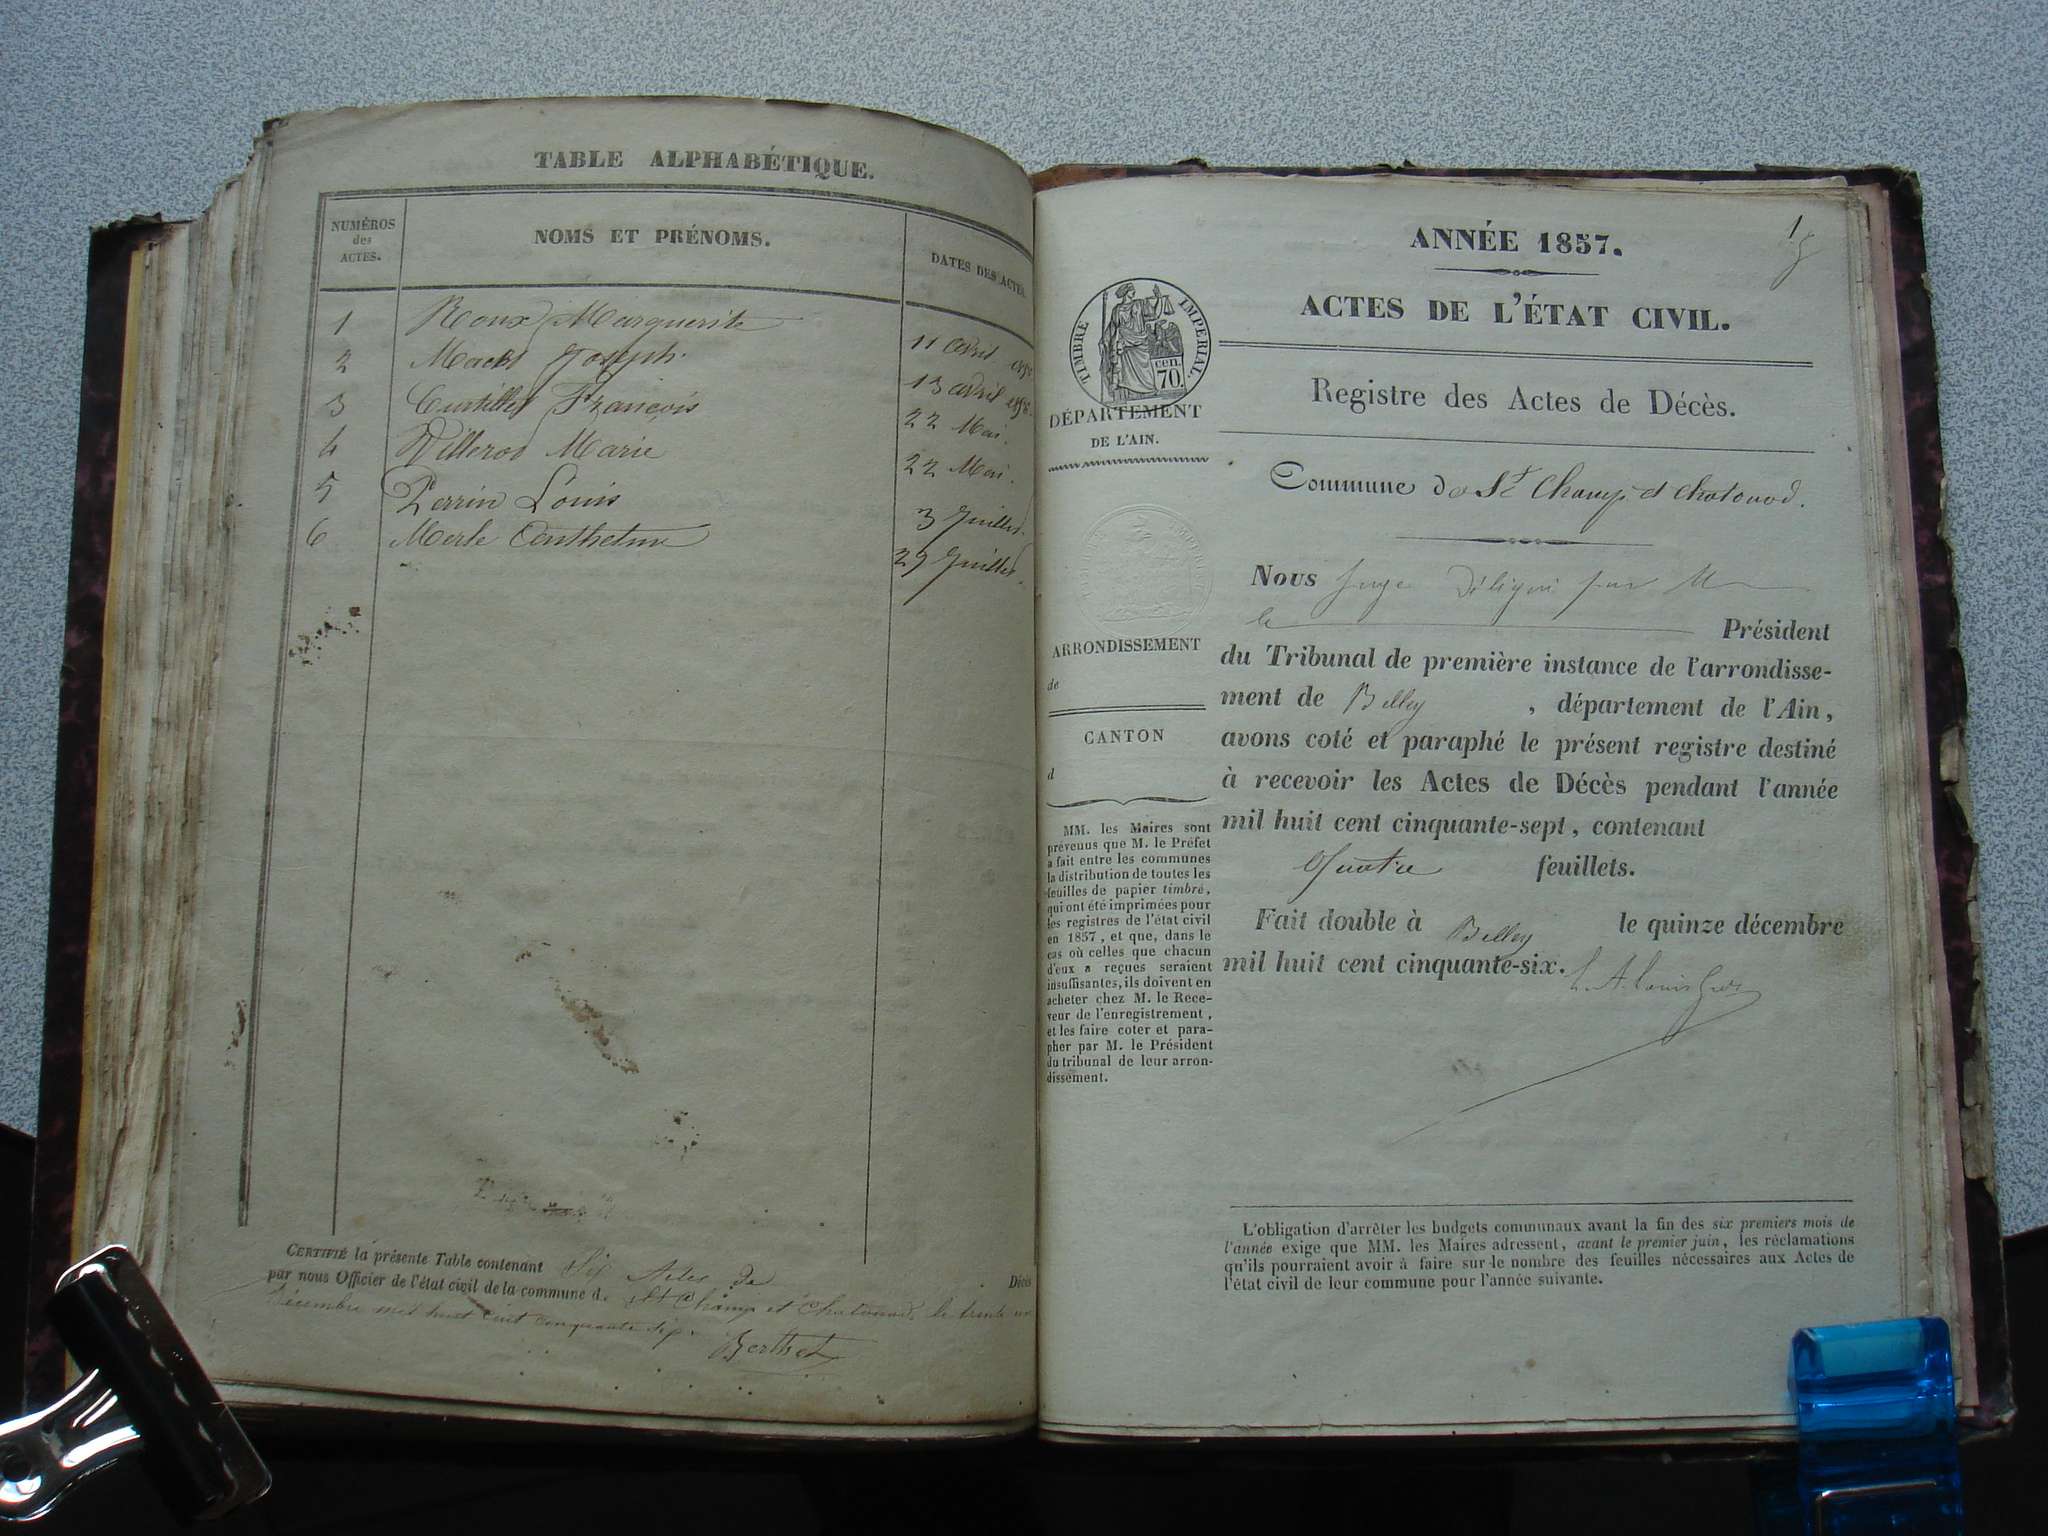 TABLE ALPHABÉTIQUE.
NUMÉROS
des
ACTES.
NOMS ET PRÉNOMS.
DATES DES ACTES.
1 Roux Marguerite 11 avril
2 Joseph 13 avril
3 François 22 Mai.
4 Marie 22 Mai.
5 Perrin Louis 3 Juillet.
6 Merle Anthelme 29 Juillet.
CERTIFIÉ la présente Table contenant Six Actes de Décès
par nous Officier de l'état civil de la commune d. St Champ et Chatonod, le trente un
Décembre mil huit cent cinquante six.
Berthet
1
ANNÉE 1857.
ACTES DE L'ÉTAT CIVIL.
TIMBRE IMPERIAL
cen
70.
Registre des Actes de Décès.
DÉPARTEMENT
DE L'AIN.
Commune de St Champ et Chatonod.
Nous Juge Délégué par M
le Président
ARRONDISSEMENT
de
CANTON
d
du Tribunal de première instance de l'arrondisse-
ment de Belley , département de l'Ain,
avons coté et paraphé le présent registre destiné
à recevoir les Actes de Décès pendant l'année
mil huit cent cinquante-sept, contenant
Quatre feuillets.
Fait double à Belley le quinze décembre
mil huit cent cinquante-six.
MM. les Maires sont
prévenus que M. le Préfet
a fait entre les communes
la distribution de toutes les
feuilles de papier timbré,
qui ont été imprimées pour
les registres de l'état civil
en 1857, et que, dans le
cas où celles que chacun
d'eux a reçues seraient
insuffisantes, ils doivent en
acheter chez M. le Rece-
veur de l'enregistrement,
et les faire coter et para-
pher par M. le Président
du tribunal de leur arron-
dissement.
L'obligation d'arrêter les budgets communaux avant la fin des six premiers mois de
l'année exige que MM. les Maires adressent, avant le premier juin, les réclamations
qu'ils pourraient avoir à faire sur le nombre des feuilles nécessaires aux Actes de
l'état civil de leur commune pour l'année suivante.